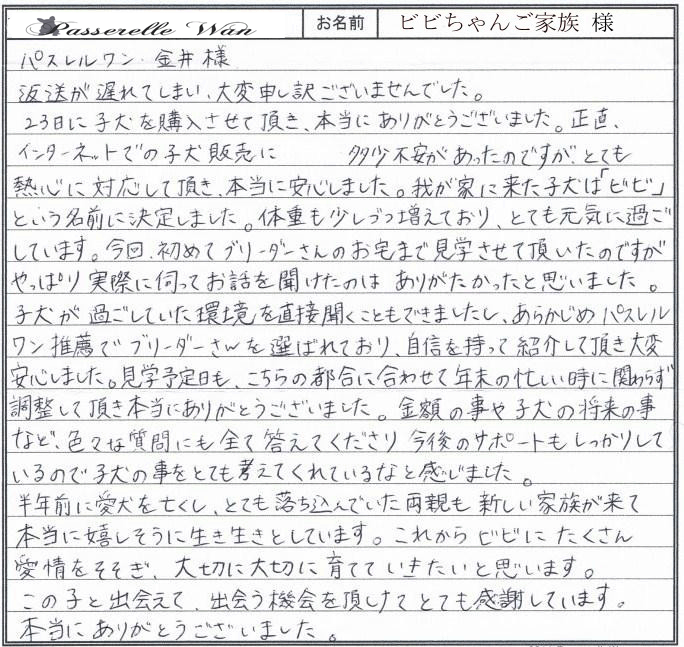 Passerelle Wan お名前 ビビちゃんご家族 様
パスレルワン 金井様
返送が遅れてしまい、大変申し訳ございませんでした。
23日に子犬を購入させて頂き、本当にありがとうございました。正直、
インターネットでの子犬販売に 多少不安があったのですが、とても
熱心に対応して頂き、本当に安心しました。我が家に来た子犬は「ビビ」
という名前に決定しました。体重も少しづつ増えており、とても元気に過ご
しています。今回、初めてブリーダーさんのお宅まで見学させて頂いたのですが
やっぱり実際に伺ってお話を聞けたのはありがたかったと思いました。
子犬が過ごしていた環境を直接聞くこともできましたし、あらかじめパスレル
ワン推薦でブリーダーさんを選ばれており、自信を持って紹介して頂き大変
安心しました。見学予定日も、こちらの都合に合わせて年末の忙しい時に関わらず
調整して頂き本当にありがとうございました。金額の事や子犬の将来の事
など、色々な質問にも全て答えてくださり今後のサポートもしっかりして
いるので子犬の事をとても考えてくれているなと感じました。
半年前に愛犬を亡くし、とても落ち込んでいた両親も新しい家族が来て
本当に嬉しそうに生き生きとしています。これからビビにたくさん
愛情をそそぎ、大切に大切に育てていきたいと思います。
この子と出会えて、出会う機会を頂けてとても感謝しています。
本当にありがとうございました。